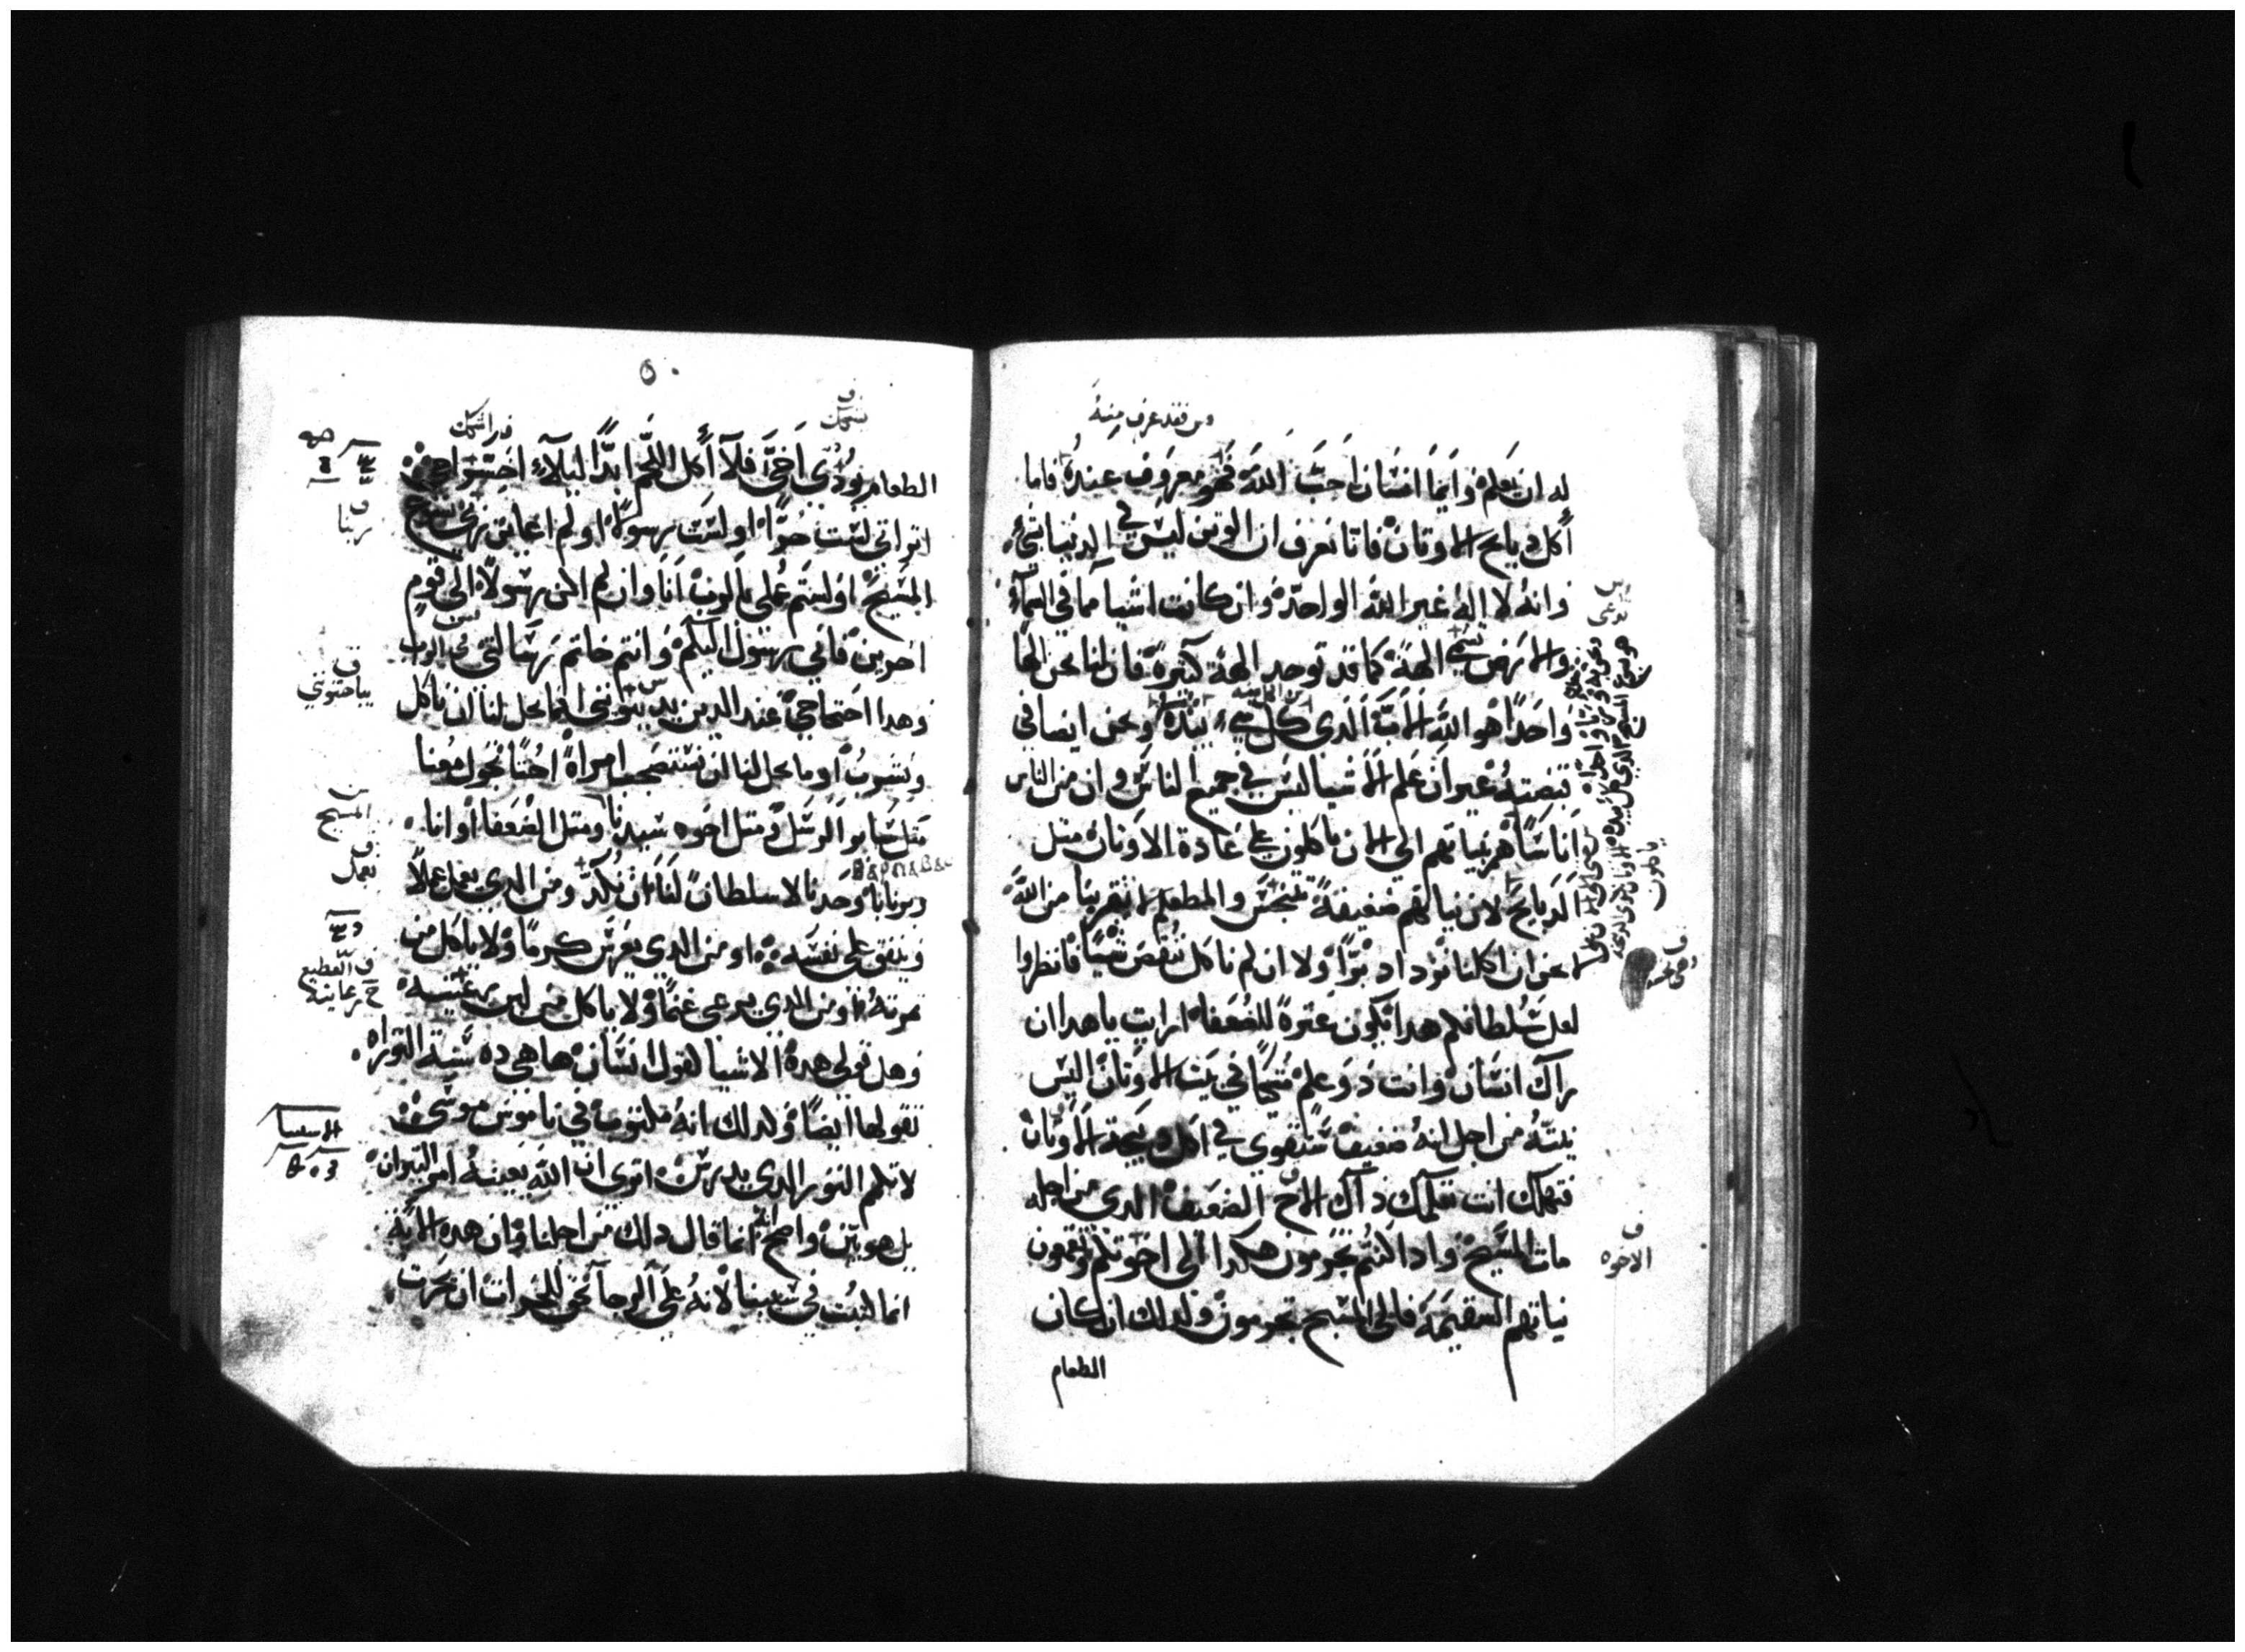 ومن فقد عرف منه
له ان يعلم وايما انسان احب الله فهو معروف عنده فاما
أكل دبايح الاوتان فانا نعرف ان الوتن ليس في الدنيا بشيء
وانه لا اله غير الله الواحد وان كانت اشيا مما في السماء
والارض تسمى الهة كما قد توجد الهة كتيرة فان لنا نحن الها
واحدا هو الله الاب الدي كل شيء بيده ونحن ايضا في
قبضته غير ان علم الاشيا ليس في جميع الناس و ان من الناس
اناسا هم بنياتهم الى الان ياكلون على عادة الاوتان متل
الدبايح لان نياتهم ضعيفة تتنجس والمطعم لا يقربنا من الله
لا نحن ان اكلنا نزداد برا ولا ان لم ناكل ننقص شيا فانظروا
لعل سلطانكم هدا يكون عترة للضعفا ارايت يا هدا ان
راك انسان وانت دو علم متكيا في بيت الاوتان اليس
نيته من اجل انه ضعيف ستقوى في اكل دبيحة الاوتان
فتهلك انت بعلمك داك الاخ الضعيف الدي من اجله
مات المسيح وادا كنتم تجرمون هكدا الى اخوتكم وتقمعون
نياتهم السقيمة فالى المسيح تجرمون ولدلك ان كان
الطعام
تدعى
ياكلون
ف
الاخوه
٥٠
الطعام يودي اخي فلا أكل اللحم ابدا ليلاء اخي
اتراني لست حرا او لست رسولا او لم اعاين ربي يسوع
المسيح او لستم عملي بالرب انا وان لم اكن رسولا الى قوم
اخرين فاني رسول اليكم وانتم خاتم رسالتي في الرب
وهدا احتجاجي عند الدين يدينوني اما يحل لنا ان ناكل
ونشرب او ما يحل لنا ان نستصحب امراة اختا تجول معنا
متل سايرو الرسل ومتل اخوه سيدنا ومتل الصفا او انا
وبرنابا وحدنا لا سلطان لنا ان نكد ومن الدي يعمل عملا
وينفق على نفسه او من الدي يغرس كرما ولا ياكل من
تمرته او من الدي يرعى غنما ولا ياكل من لبن رعيته
وهل قولي هده الاشيا كقول انسان ها هي ده سنة التوراه
تقولها ايضا ولدلك انه مكتوب في ناموس موسى
لا تكم التور الدي يدرس اترى ان الله يعنيه امر التيران
بل هو بين واضح انه انما قال دلك من اجلنا وان هده الاية
انما كتبت في سببنا لانه على الرجا يحق للحرات ان يحرت
ف
ربنا
ف
يباحتونني
المسيح
ف
نعمل
ف القطيع
رعايته